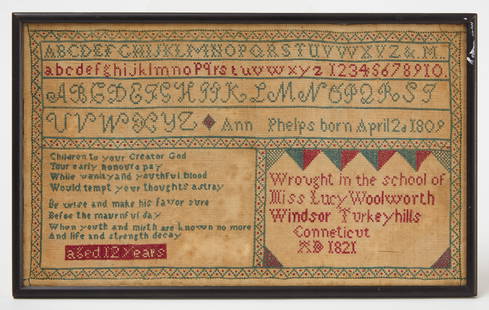 ABCDEFGHIJKLMNOPQRSTUVWXYZ&M.
abcdefghijklmnopqrstuvwxyz 12345678910.
ABCDEFGHIJKLMNOPQRST
UVWXYZ Ann Phelps born April 2d 1809
Children to your Creator God
Your early honours pay
While vanity and youthful blood
Would tempt your thoughts astray
Be wise and make his favor sure
Before the mournful day
When youth and mirth are known no more
And life and strength decay
aged 12 years
Wrought in the school of
Miss Lucy Woolworth
Windsor Turkeyhills
Conneticut
AD 1821